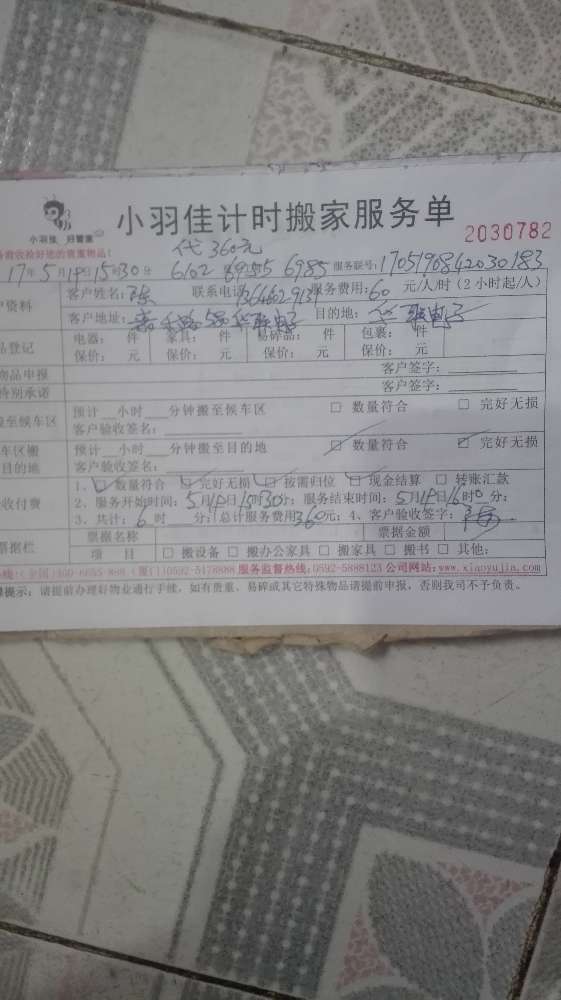 小羽佳 好管家
小羽佳计时搬家服务单
2030782
前收拾好您的贵重物品!
代 360元
17年5月19日15时30分 6102 6985 服务联号:1705190842030183
户资料 客户姓名:陈 联系电话 服务费用:60 元/人/时(2小时起/人)
客户地址: 目的地:
品登记 电器: 件 家具: 件 易碎品: 件 包裹: 件
保价: 元 保价: 元 保价: 元 保价: 元
物品申报 客户签字:
特别承诺 客户签字:
搬至候车区 预计 小时 分钟搬至候车区 □ 数量符合 □ 完好无损
客户验收签名:
车区搬 预计 小时 分钟搬至目的地 □ 数量符合 □ 完好无损
目的地 客户验收签名:
收付费 1、□ 数量符合 □ 完好无损 □ 按需归位 □ 现金结算 □ 转账汇款
2、服务开始时间:5月19日15时30分;服务结束时间:5月19日16时 分;
3、共计:6 时 分;总计服务费用360元;4、客户验收签字:
票据栏 票据名称 票据金额
项 目 □ 搬设备 □ 搬办公家具 □ 搬家具 □ 搬书 □ 其他:
线:(全国)400-6695-888 (厦门)0592-5178888 服务监督热线:0592-5888123 公司网站:www.xiaoyujia.com
提示:请提前办理好物业通行手续,如有贵重、易碎或其它特殊物品请提前申报,否则我司不予负责。